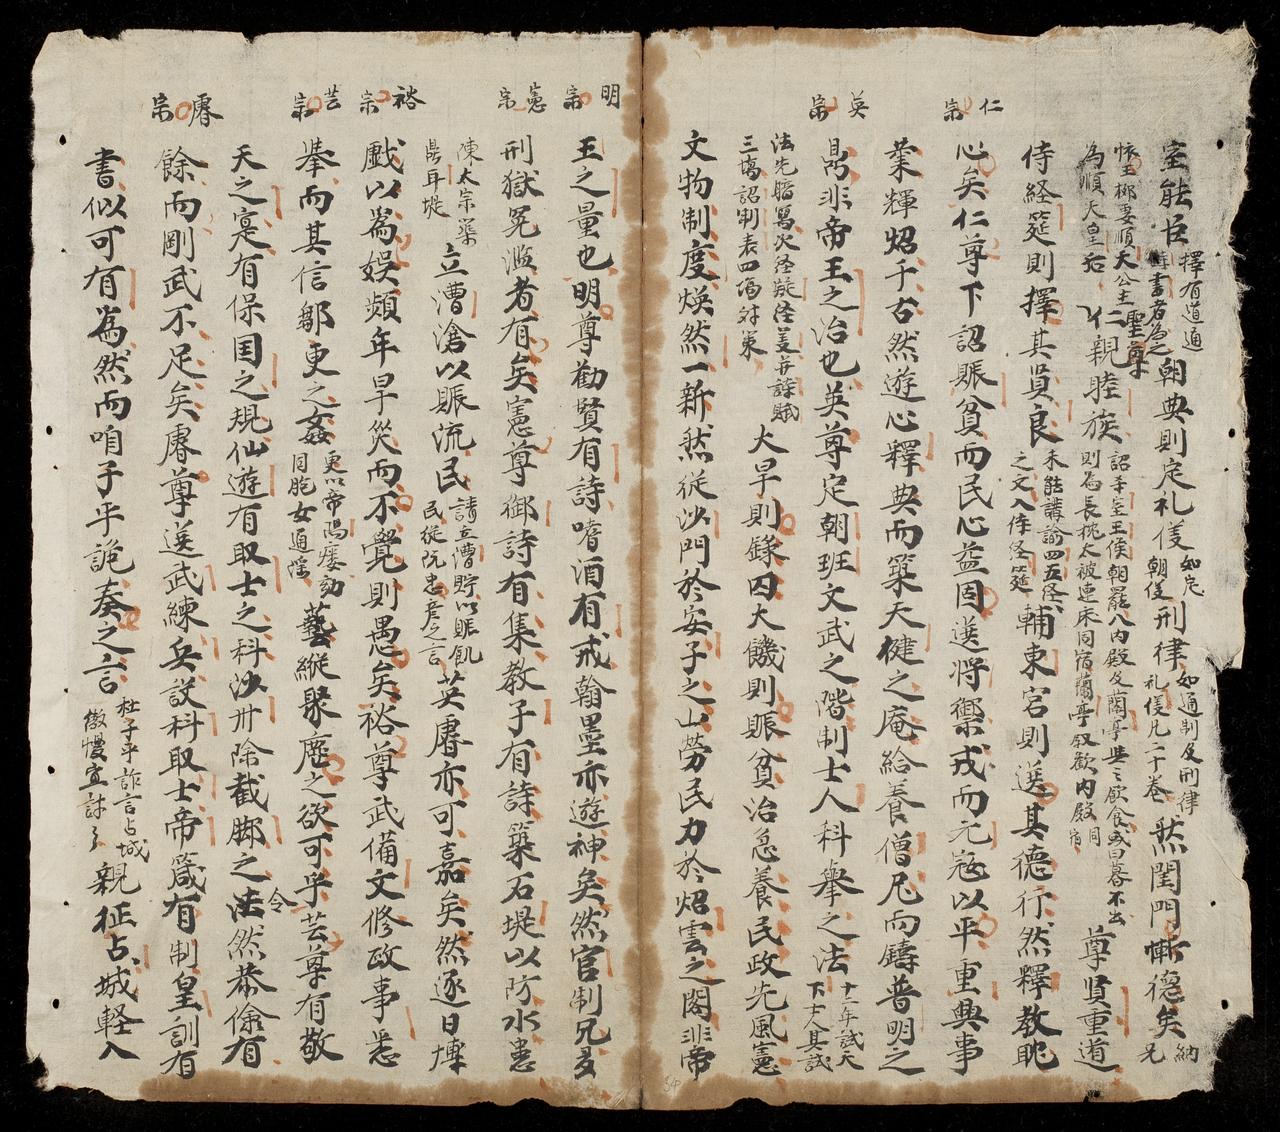 仁宗
英宗
明宗
憲宗
裕宗
芸宗
睿宗
室能臣擇有道通詩書者為之朝典則定礼儀如定朝儀刑律如通制及刑律礼儀凡二十卷然閨門慚德矣納兄
懷王鄉妻順天公主為順天皇后仁親睦族詔宗室王侯朝罷入内殿及蘭亭與之飲食或日暮不出則為長枕大被連床同宿蘭亭叙歡内殿同宿尊賢重道
侍経筵則擇其賢良未能講諭四五経之文入侍経筵輔東宮則選其德行然釋教眈
心矣仁尊下詔賑貧而民心益固選將禦戎而元寇以平重興事
業輝炤千古然遊心釋典而築天健之庵給養僧尼而鑄普明之
昂非帝王之治也英尊定朝班文武之階制士人科舉之法十二年試天下士人其試
法先暗寫次経疑経義并詩賦三塲詔制表四塲対策大旱則錄囚大饑則賑貧治急養民政先風憲
文物制度煥然一新然従沙門於安子之山劳民力於炤雲之閣非帝
王之量也明尊勸賢有詩嗜酒有戒翰墨亦遊神矣然官制冗多
刑獄冤濫者有矣憲尊御詩有集教子有詩築石堤以防水患
陳太宗築鼎耳堤立漕滄以賑流民請立漕貯以賑飢民従阮忠彦之言英睿亦可嘉矣然逐日博
戲以為娱頻年旱災而不覺則愚矣裕尊武備文修政事悉
挙而其信鄒更之姦更以帝陽痿劝同胞女通滛藝縱聚麀之欲可乎芸尊有敬
天之寔有保国之規仙遊有取士之科沙卅除截脚之法令然恭儉有
餘而剛武不足矣睿尊選武練兵設科取士帝箴有制皇訓有
書似可有為然而咱子平詭奏之言杜子平詐言占城傲慢宜討了親征占城軽入